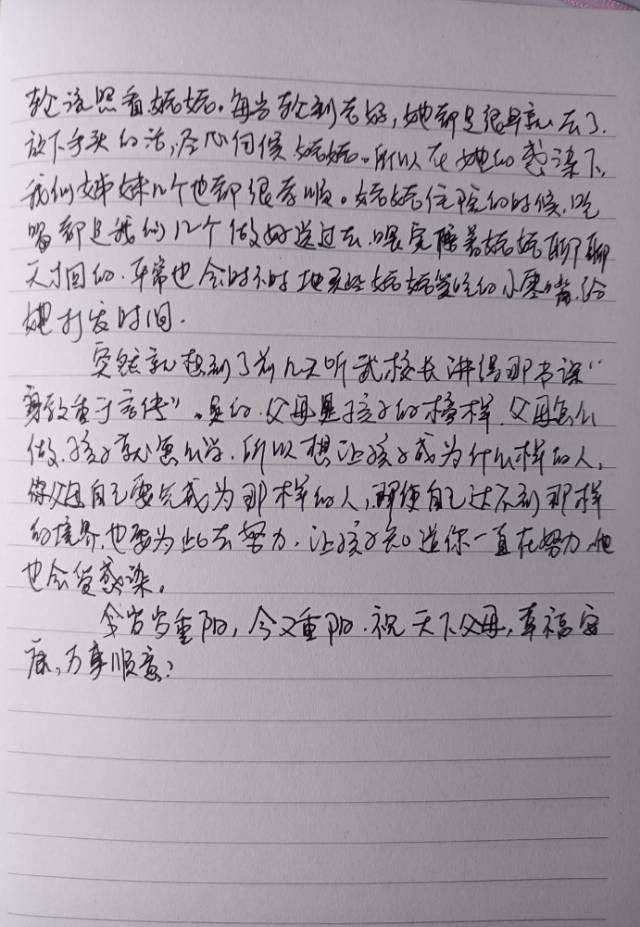 轮该照看姥姥。每当轮到老妈,她都是很早就去了.
放下手头的活,尽心伺候姥姥。所以在她的感染下,
我们姊妹几个也都很孝顺。姥姥住院的时候,吃
喝都是我们几个做好送过去,喂完陪着姥姥聊聊
天才回的.平常也会时不时地买些姥姥爱吃的小零嘴.给
她打发时间.
突然就想到了前几天听武校长讲得那节课“
身教重于言传”。是的.父母是孩子的榜样.父母怎么
做.孩子就怎么学.所以想让孩子成为什么样的人,
你必自己要先成为那样的人,即使自己达不到那样
的境界,也要为此去努力.让孩子知道你一直在努力.他
也会受感染。
岁岁重阳,今又重阳.祝天下父母,幸福安
康,万事顺意!